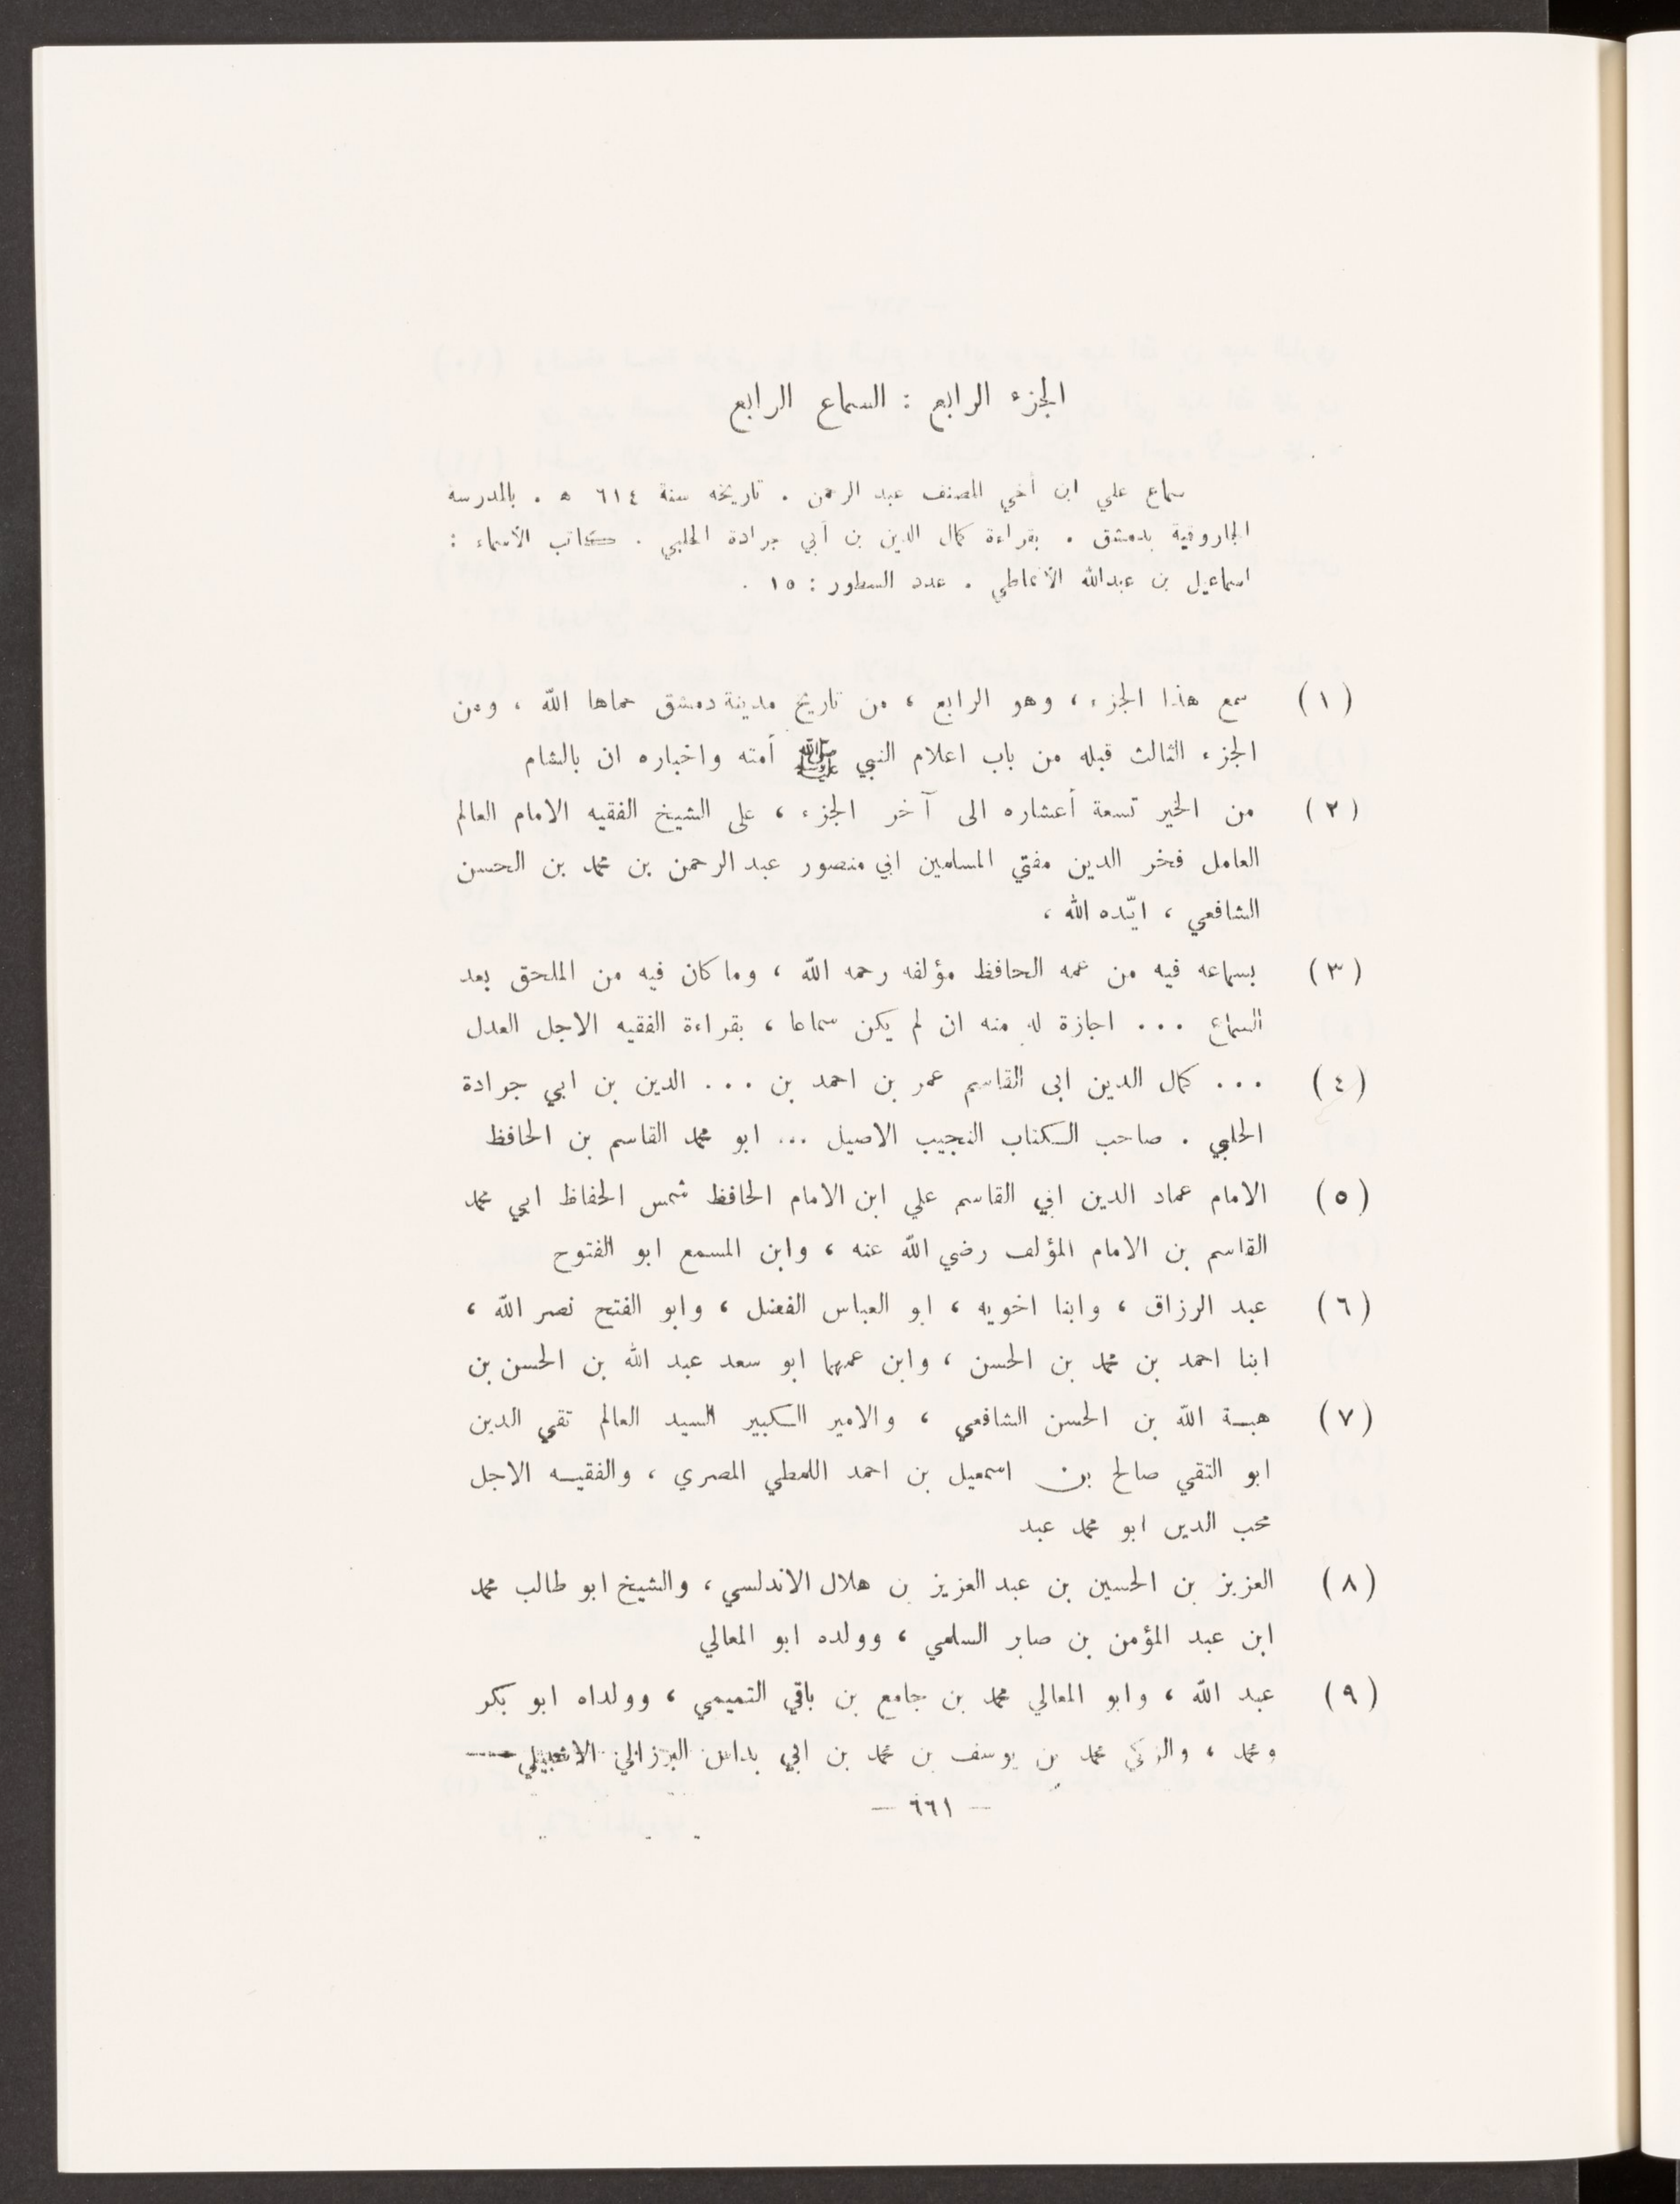 الجزء الرابع : السماع الرابع
سماع علي ابن أخي المصنف عبد الرحمن . تاريخه سنة ٦١٤ ه . بالمدرسة
الجاروقية بدمشق . بقراءة كمال الدين بن أبي جرادة الحلبي . كاتب الأسماء :
اسماعيل بن عبدالله الأنماطي . عدد السطور : ١٥ .
(١) سمع هذا الجزء ، وهو الرابع ، من تاريخ مدينة دمشق حماها الله ، ومن
الجزء الثالث قبله من باب اعلام النبي ﷺ أمته واخباره ان بالشام
(٢) من الخير تسعة أعشاره الى آخر الجزء ، على الشيخ الفقيه الامام العالم
العامل فخر الدين مفتي المسلمين ابي منصور عبد الرحمن بن محمد بن الحسن
الشافعي ، ايّده الله ،
(٣) بسماعه فيه من عمه الحافظ مؤلفه رحمه الله ، وما كان فيه من الملحق بعد
السماع ... اجازة له منه ان لم يكن سماعا ، بقراءة الفقيه الاجل العدل
(٤) ... كمال الدين ابى القاسم عمر بن احمد بن ... الدين بن ابي جرادة
الحلبي . صاحب الكتاب النجيب الاصيل ... ابو محمد القاسم بن الحافظ
(٥) الامام عماد الدين ابي القاسم علي ابن الامام الحافظ شمس الحفاظ ابي محمد
القاسم بن الامام المؤلف رضي الله عنه ، وابن المسمع ابو الفتوح
(٦) عبد الرزاق ، وابنا اخويه ، ابو العباس الفضل ، وابو الفتح نصر الله ،
ابنا احمد بن محمد بن الحسن ، وابن عمهما ابو سعد عبد الله بن الحسن بن
(٧) هبة الله بن الحسن الشافعي ، والامير الكبير السيد العالم تقي الدين
ابو التقي صالح بن اسمعيل بن احمد اللمطي المصري ، والفقيه الاجل
محب الدين ابو محمد عبد
(٨) العزيز بن الحسين بن عبد العزيز بن هلال الاندلسي ، والشيخ ابو طالب محمد
ابن عبد المؤمن بن صابر السلمي ، وولده ابو المعالي
(٩) عبد الله ، وابو المعالي محمد بن جامع بن باقي التميمي ، وولداه ابو بكر
ومحمد ، والزكي محمد بن يوسف بن محمد بن ابي بداس البرزالي الاشبيلي
— ٦٦١ —